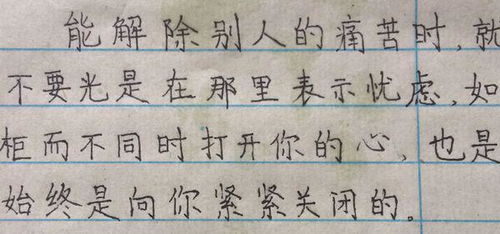 能解除别人的痛苦时,就
不要光是在那里表示忧虑,如
柜而不同时打开你的心,也是
始终是向你紧紧关闭的。